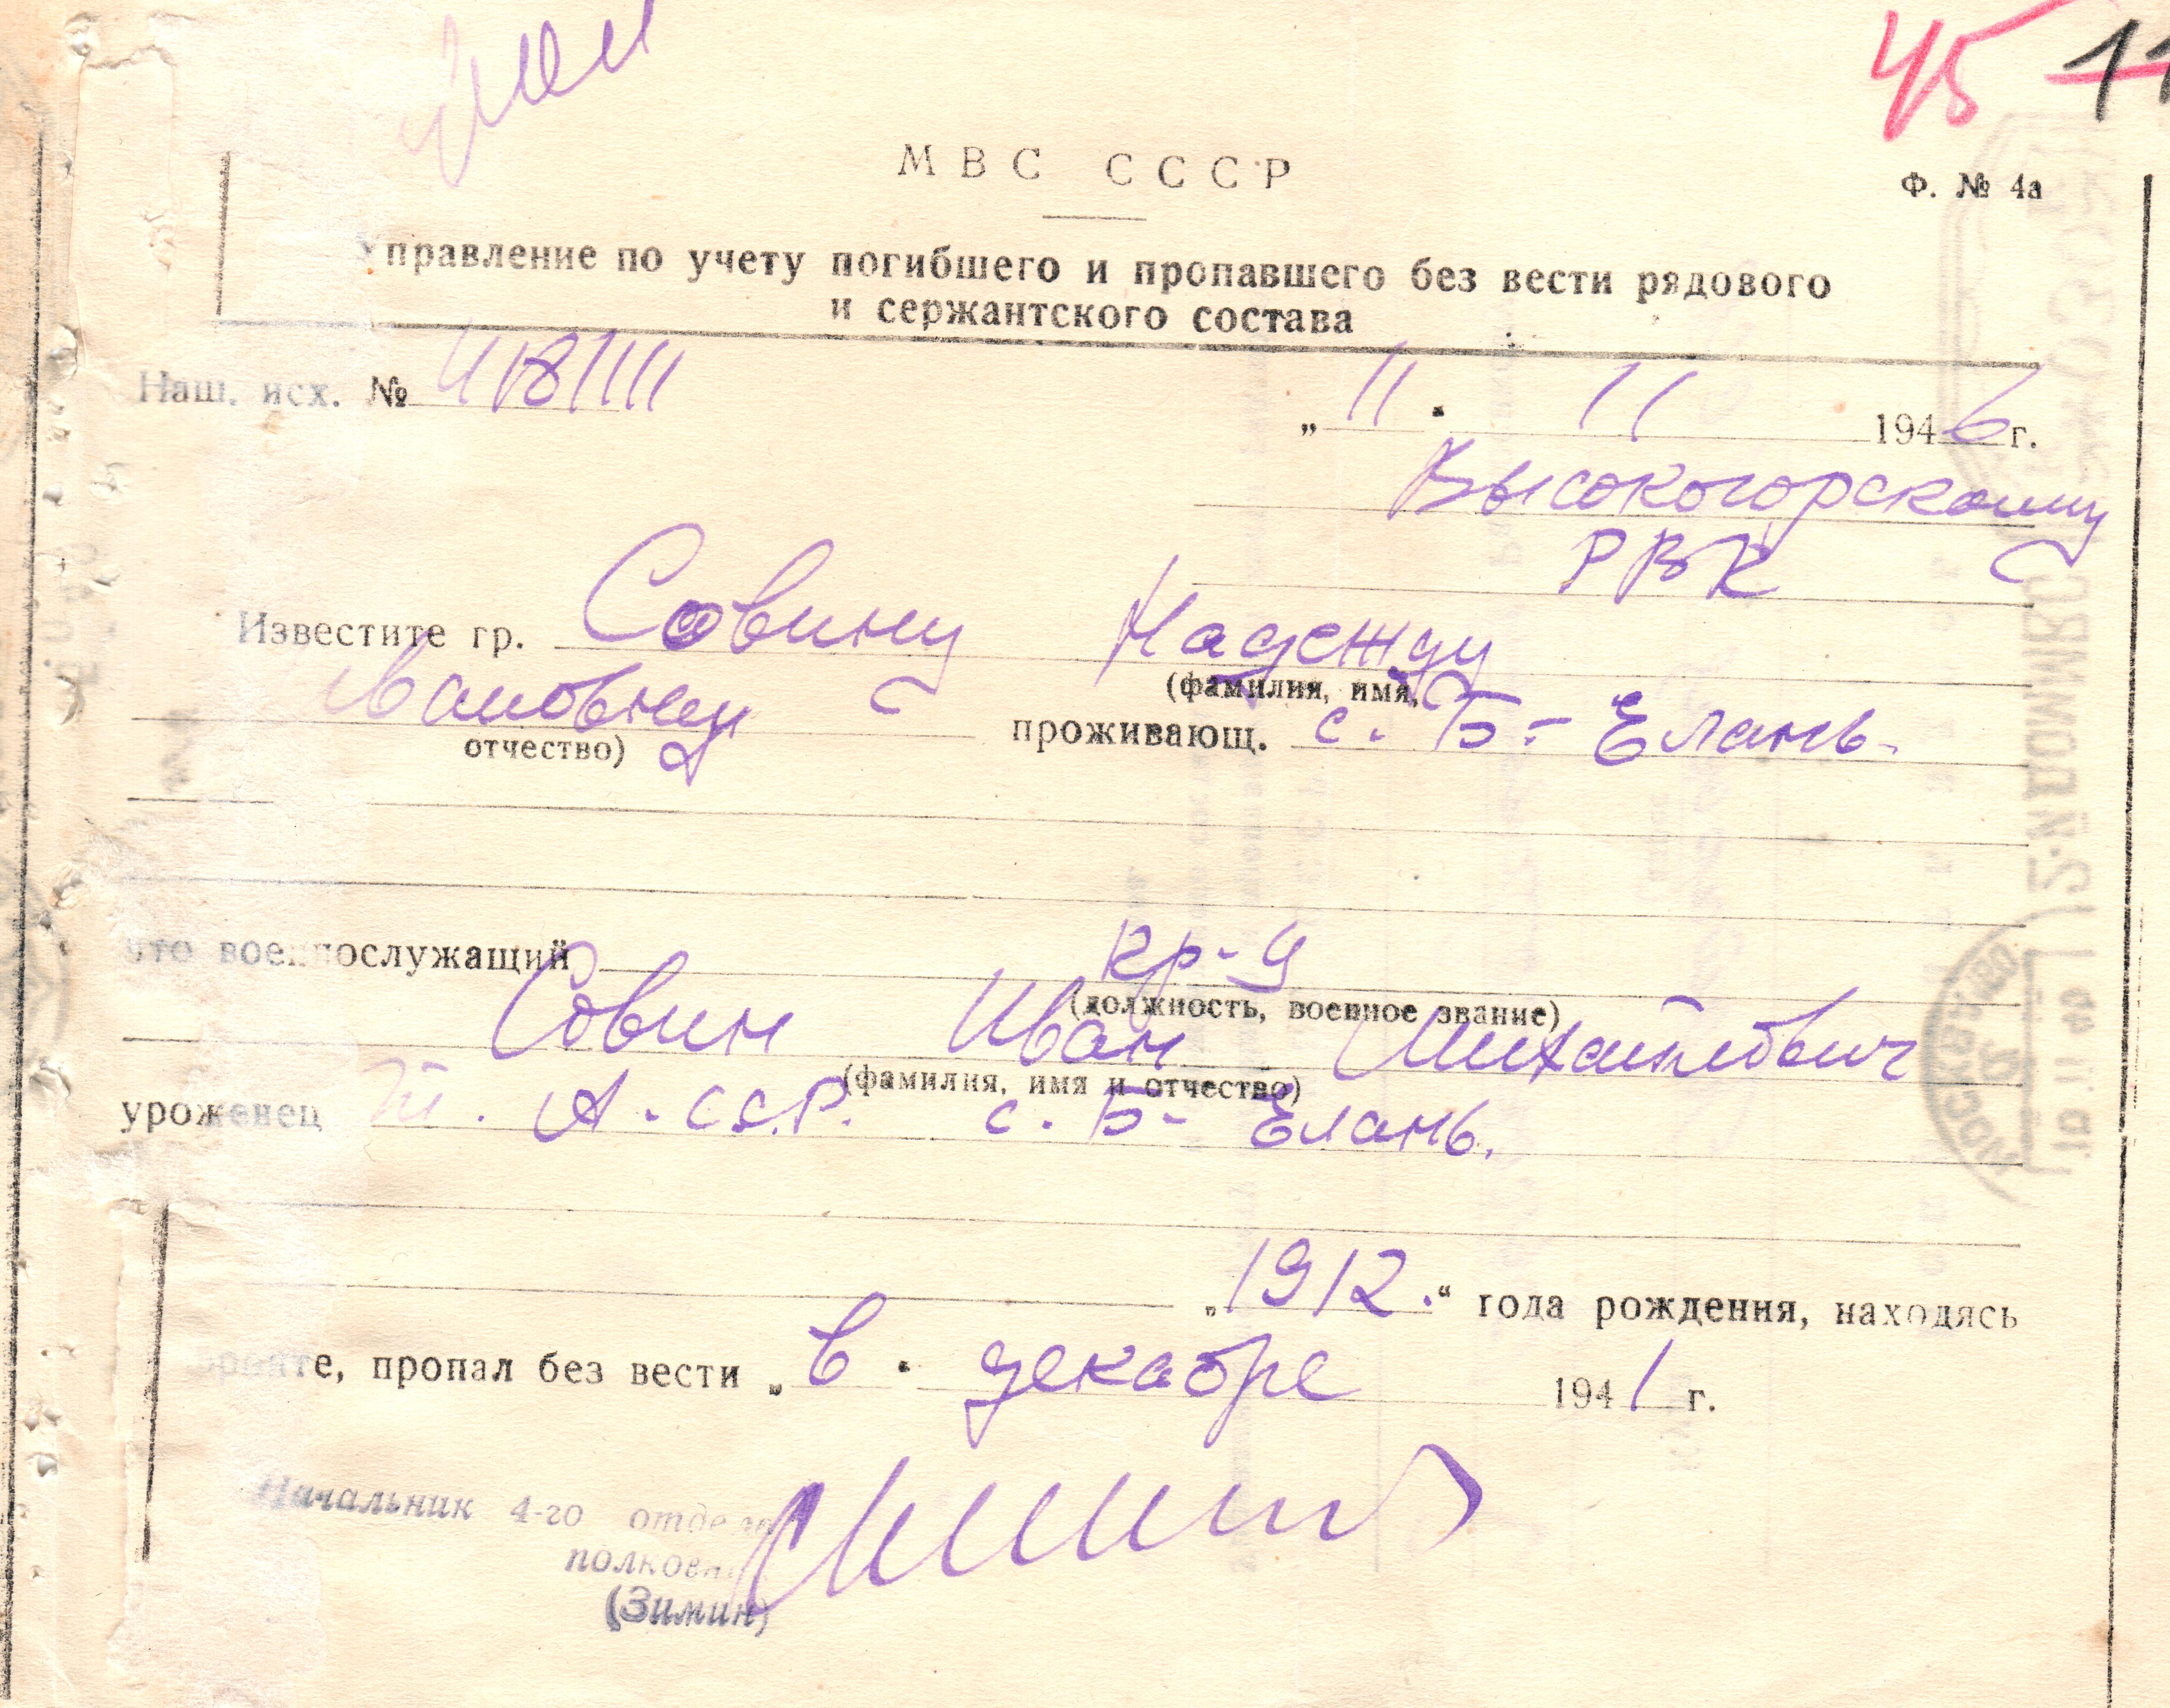 45 11
МВС СССР
Ф. № 4а
Управление по учету погибшего и пропавшего без вести рядового
и сержантского состава
Наш. исх. № 4181111
„ 11 . 11 1946 г.
Высокогорскому
РВК
Известите гр. Совину Надежду
(фамилия, имя,
Ивановну проживающ. с. Б-Елань.
отчество)
что военнослужащий кр-ц
(должность, военное звание)
Совин Иван Михайлович
(фамилия, имя и отчество)
уроженец Т. А. ССР. с. Б-Елань.
„1912.“ года рождения, находясь
фронте, пропал без вести „ в . декабре 1941 г.
Начальник 4-го отдела
полковник
(Зимин)